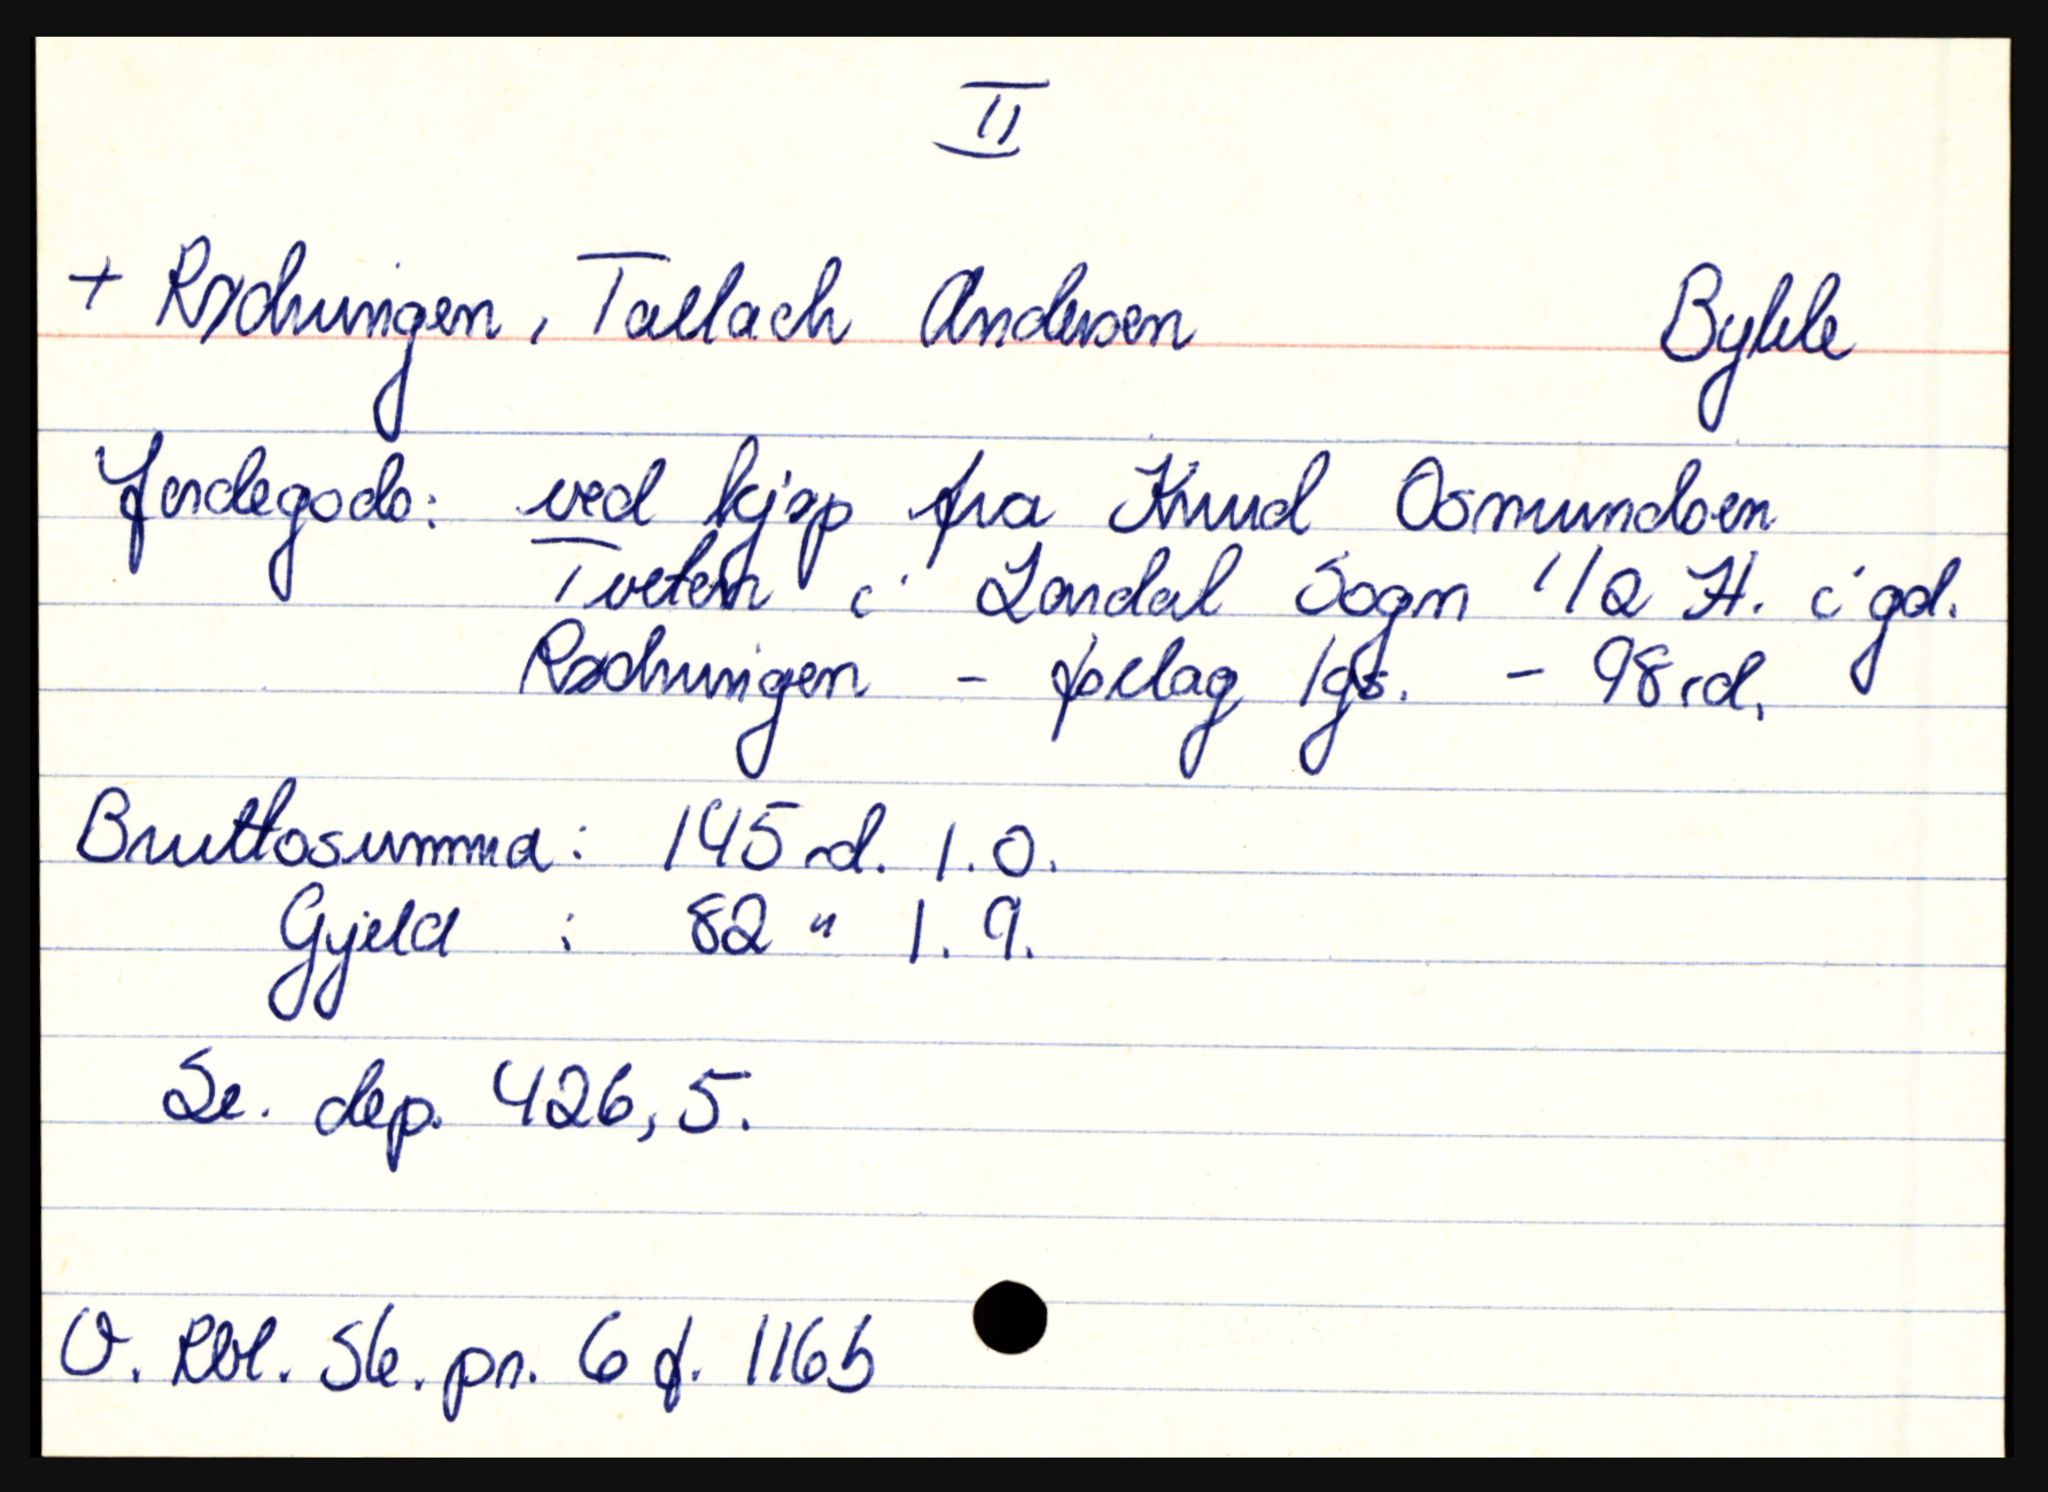 II
+ Rødningen, Tallach Andersen Bykle
Jordegods: ved kjøp fra Knud Osmundsen
Tveten i Lardal Sogn 1/2 H. i gd.
Rødningen - pålag 1gs. - 98 rd.
Bruttosumma: 145 rd. 1. 0.
Gjeld : 82 " 1. 9.
Se. dep. 426, 5.
O. Rbl. Sk. pr. 6 f. 116b